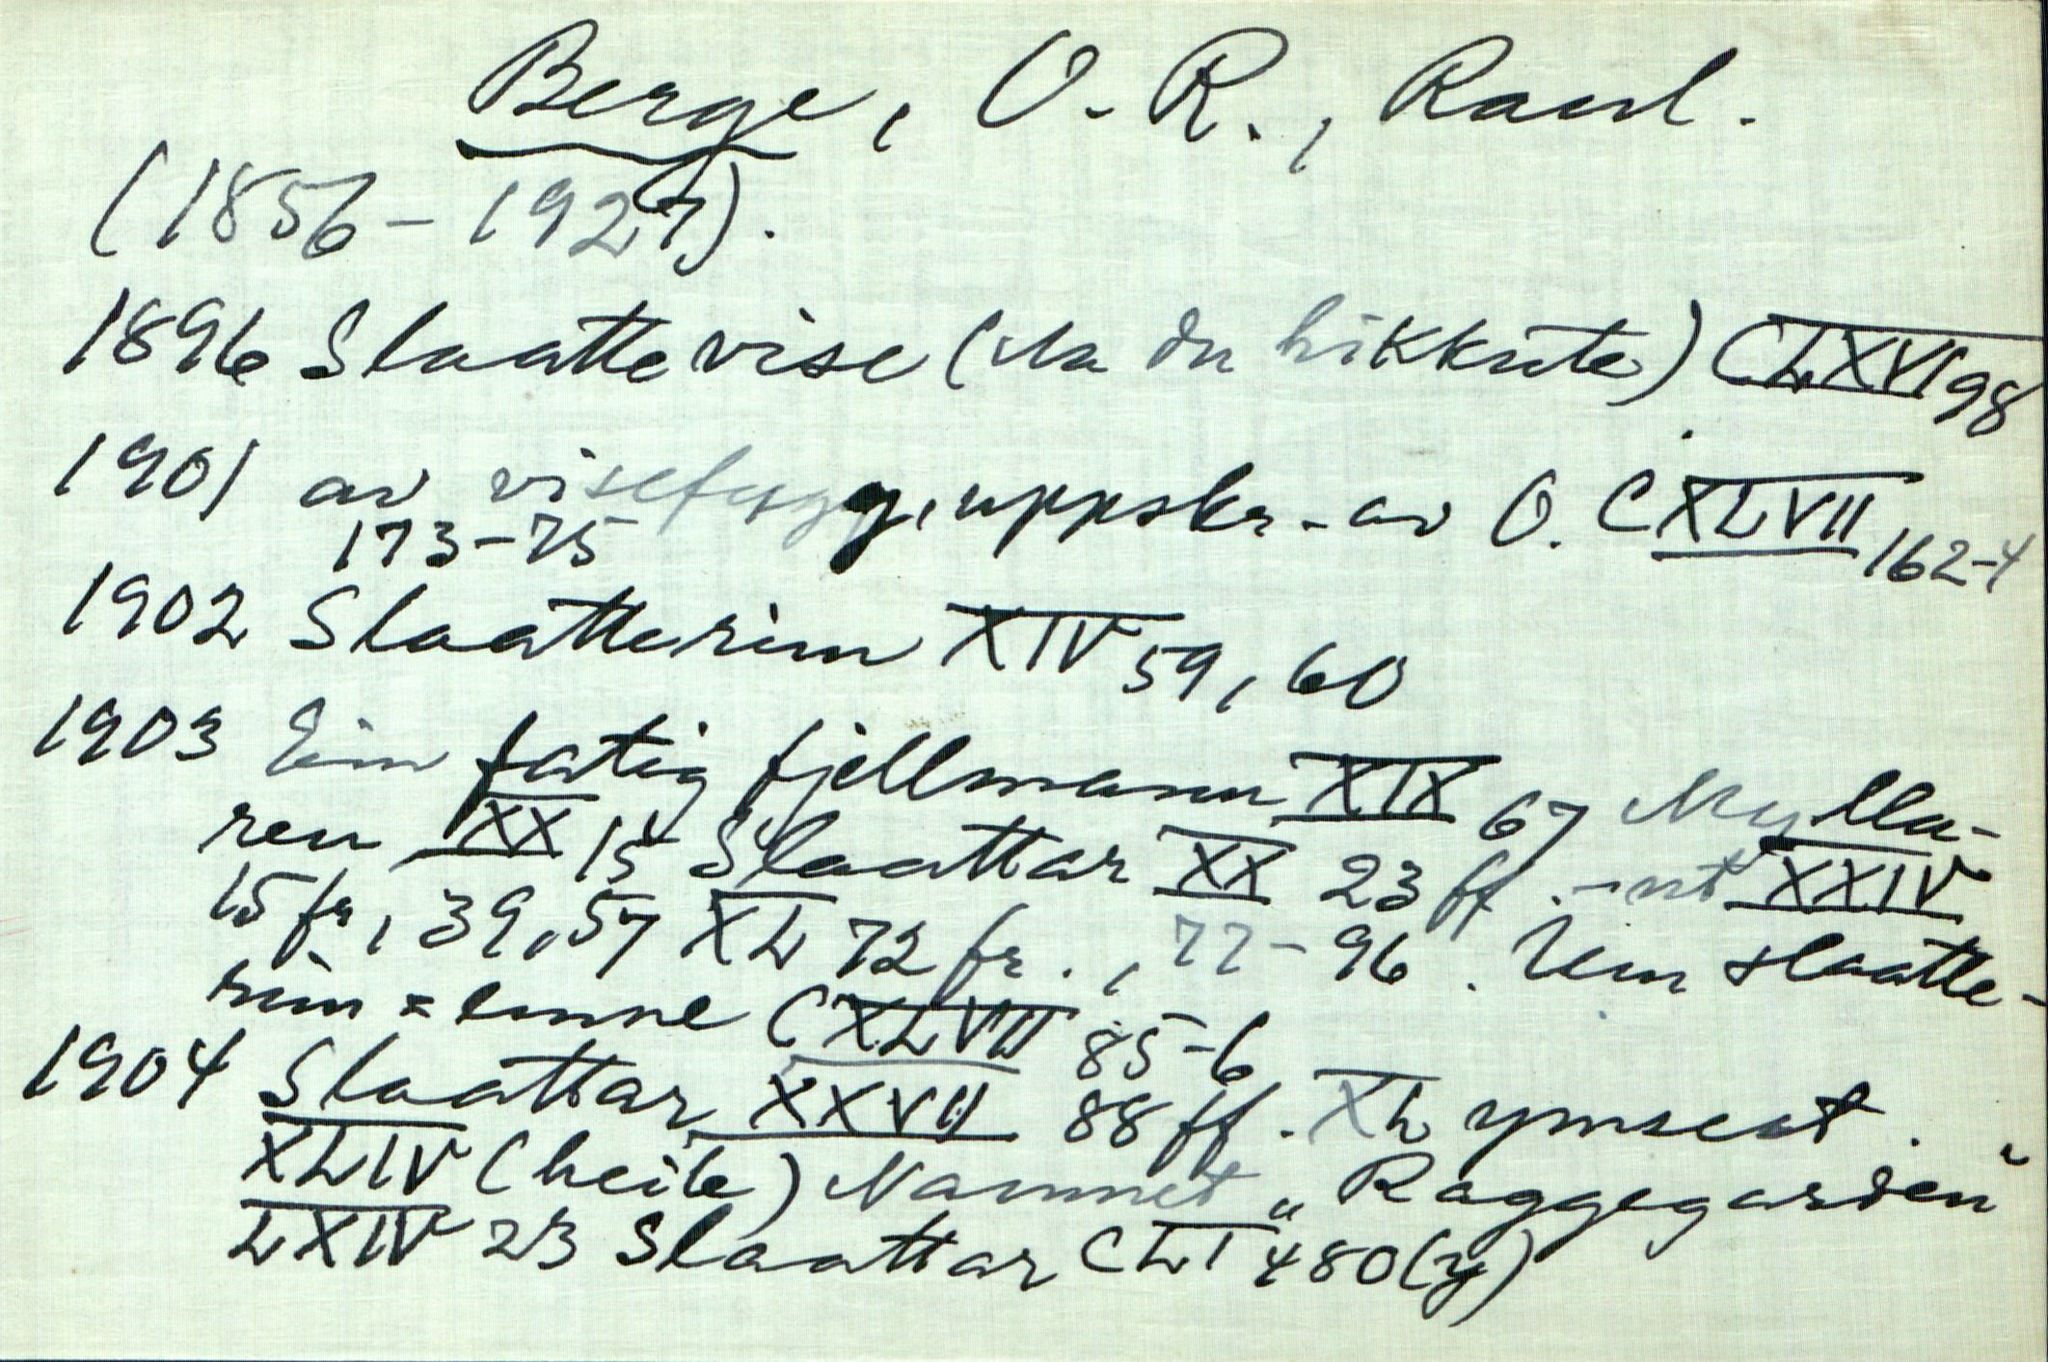 Berge, O. R., Raul.
(1856 - 1927).
1896 Slaattevise (Aa du hikkute) CLXVI 98
1901 av visefugg, uppskr. av O. CXLVII 162-4
173-75
1902 Slaatterim XIV 59, 60
1903 Ein fatig fjellmann XIX 67 Mylla-
ren XX 15 Slaattar XX 23 ff. - nt XXIV
15 fr, 39, 57 XL 72 fr., 77-96. Um slaatte-
rim = emne CXLVII 85-6
1904 Slaattar XXVII 88 ff. XL ymseat.
XLIV (heile) Namnet „Raggegarden"
LXIV 23 Slaattar CLI 480 (y)